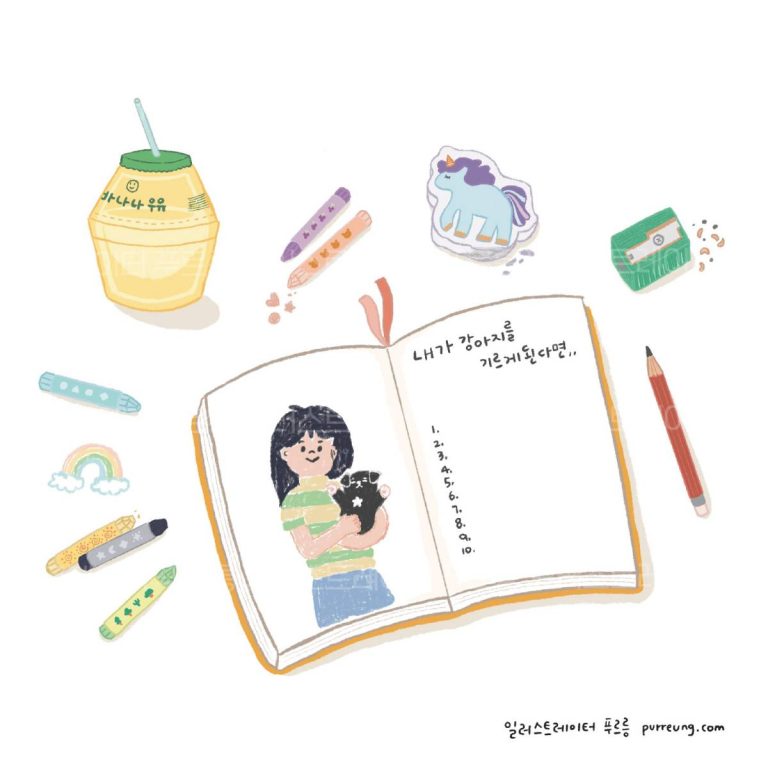 바나나 우유
내가 강아지를
기르게 된다면,,
1.
2.
3.
4.
5.
6.
7.
8.
9.
10.
일러스트레이터 푸르릉 purreung.com